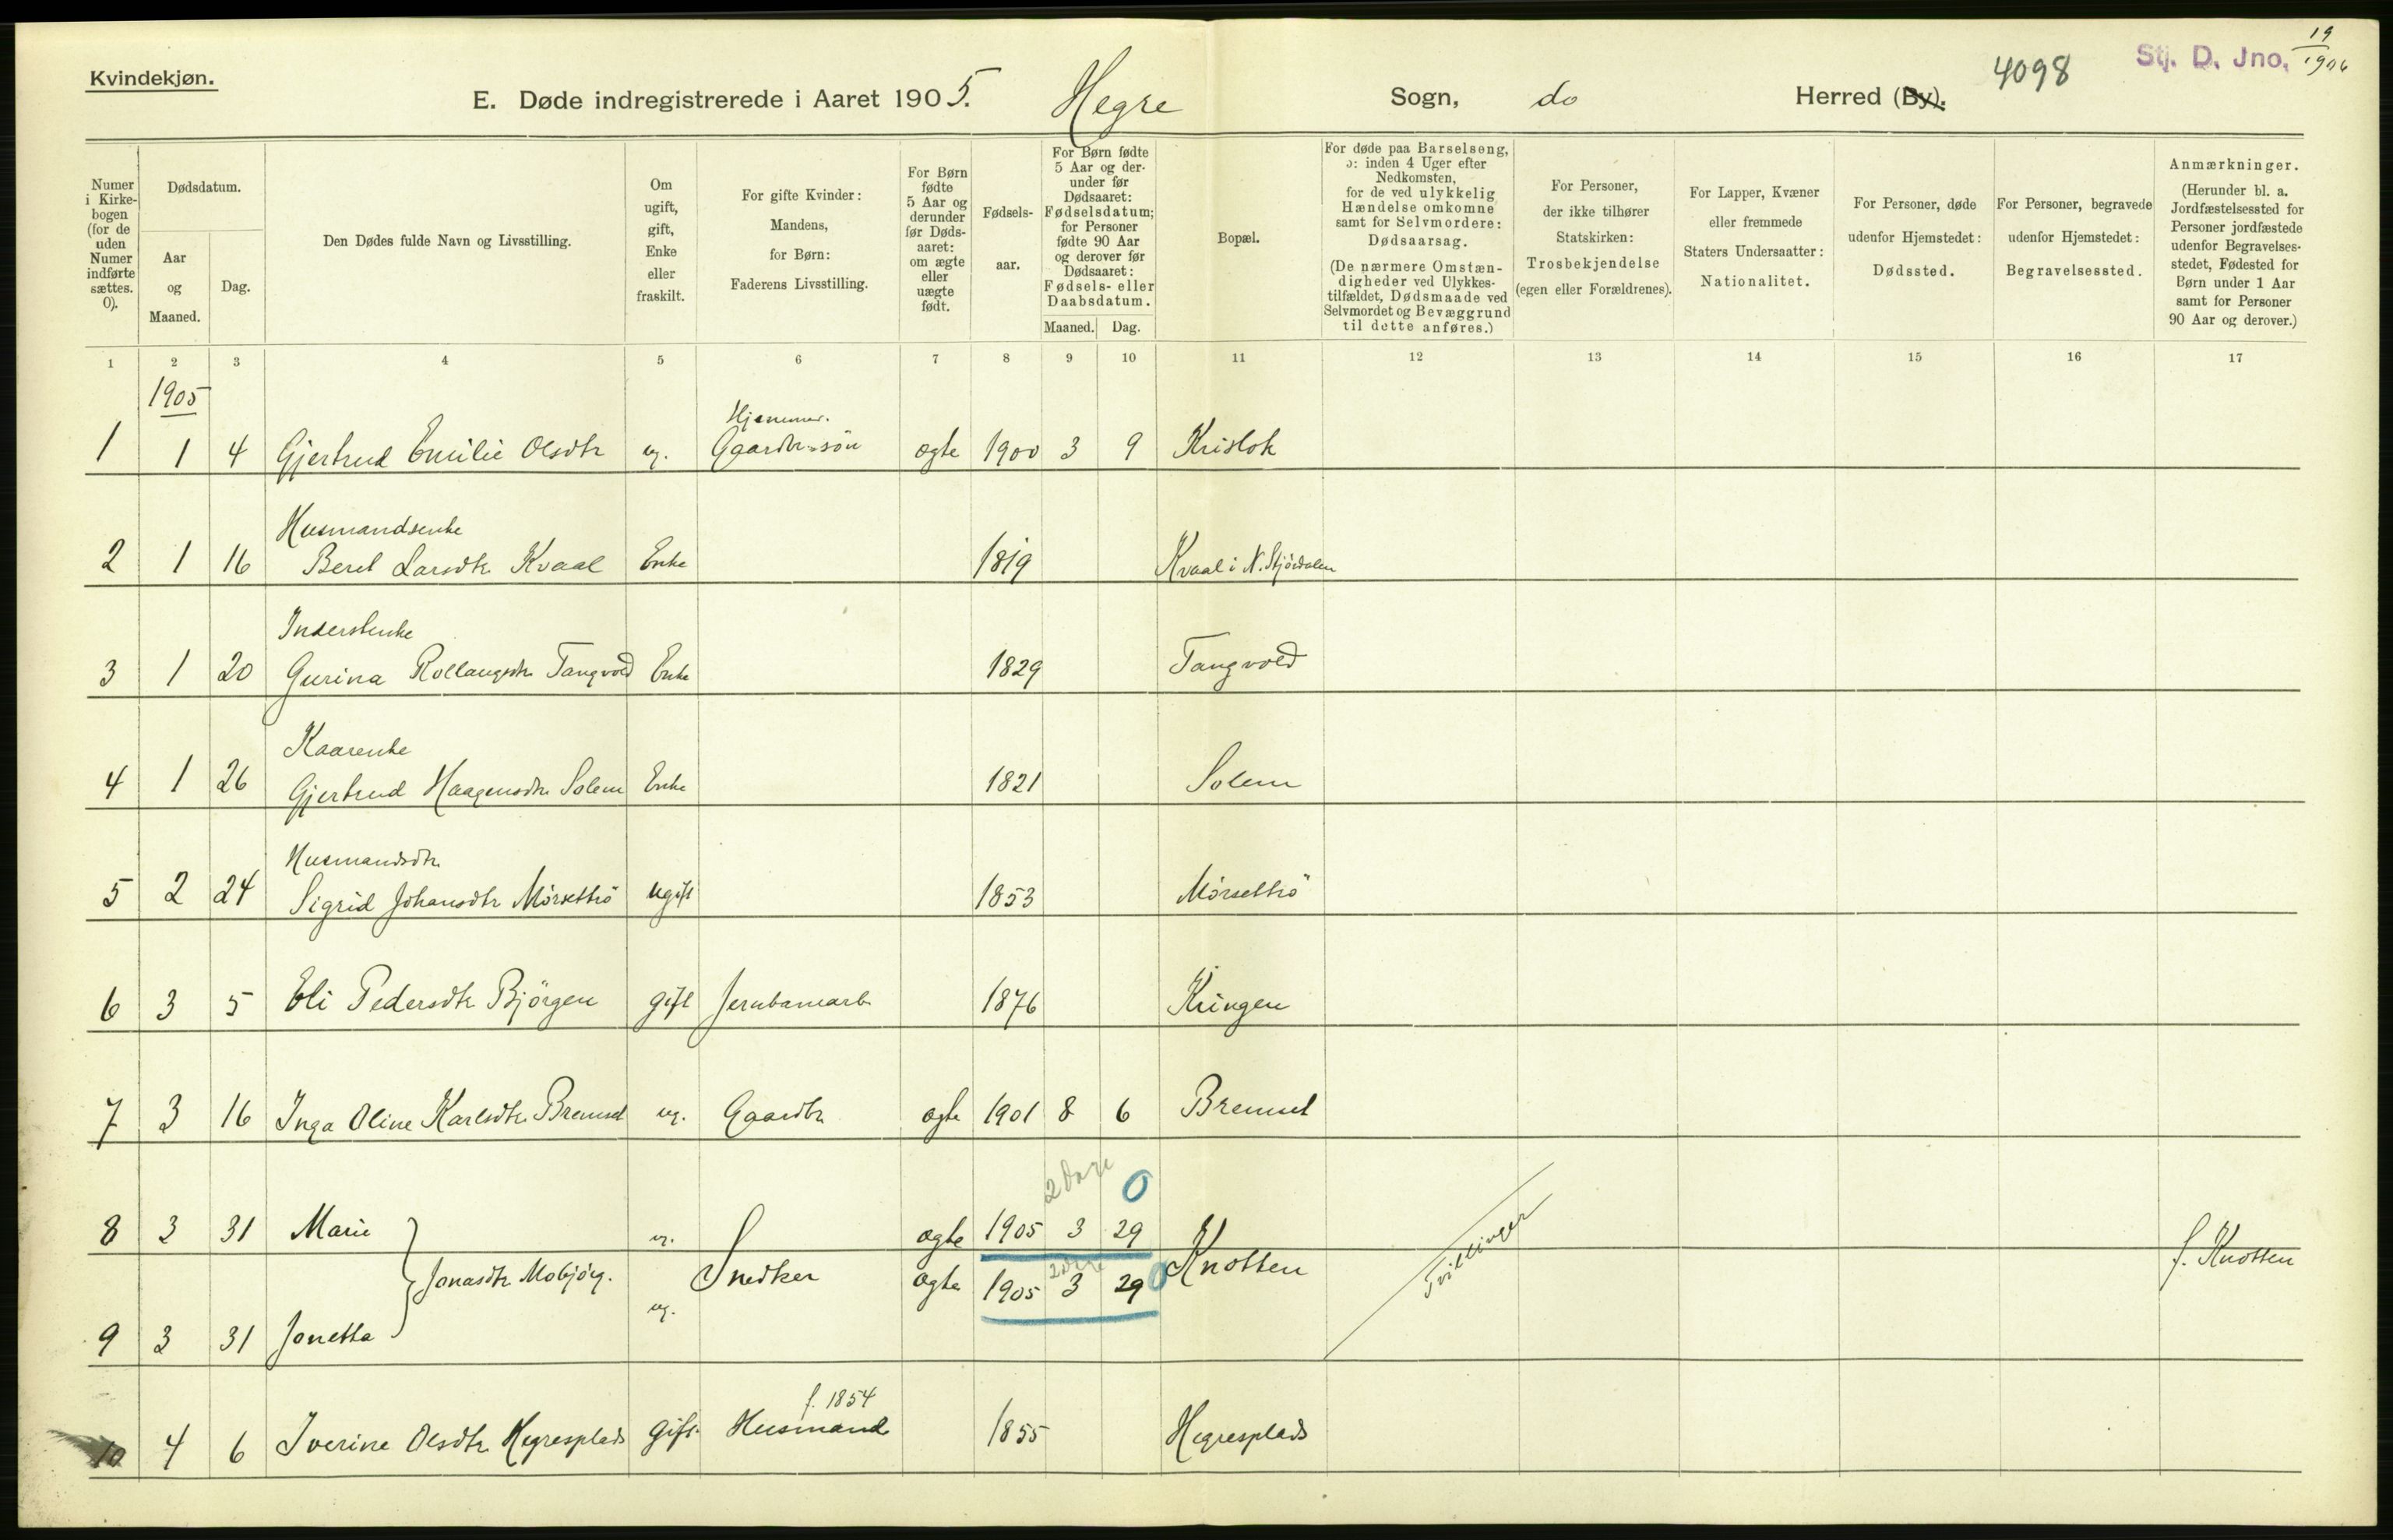 Kvindekjøn.
E. Døde indregistrerede i Aaret 1905. Hegre Sogn, do Herred (By).
4098
Stj. D. Jno. 19/1906
Numer i Kirkebogen (for de uden Numer indførte sættes. 0).
Dødsdatum.
Aar og Maaned.
Dag.
Den Dødes fulde Navn og Livsstilling.
Om ugift, gift, Enke eller fraskilt.
For gifte Kvinder: Mandens, for Børn: Faderens Livsstilling.
For Børn fødte 5 Aar og derunder før Dødsaaret: om ægte eller uægte født.
Fødselsaar.
For Børn fødte 5 Aar og derunder før Dødsaaret: Fødselsdatum; for Personer fødte 90 Aar og derover før Dødsaaret: Fødsels- eller Daabsdatum.
Maaned. Dag.
Bopæl.
For døde paa Barselseng, ɔ: inden 4 Uger efter Nedkomsten, for de ved ulykkelig Hændelse omkomne samt for Selvmordere: Dødsaarsag. (De nærmere Omstændigheder ved Ulykkestilfældet, Dødsmaade ved Selvmordet og Bevæggrund til dette anføres.)
For Personer, der ikke tilhører Statskirken: Trosbekjendelse (egen eller Forældrenes).
For Lapper, Kvæner eller fremmede Staters Undersaatter: Nationalitet.
For Personer, døde udenfor Hjemstedet: Dødssted.
For Personer, begravede udenfor Hjemstedet: Begravelsessted.
Anmærkninger. (Herunder bl. a. Jordfæstelsessted for Personer jordfæstede udenfor Begravelsesstedet, Fødested for Børn under 1 Aar samt for Personer 90 Aar og derover.)
1 2 3 4 5 6 7 8 9 10 11 12 13 14 15 16 17
1905
Hjemmev.
1 1 4 Gjertrud Emilie Olsdtr ug. Gaardbr.søn ægte 1900 3 9 Krislok
Husmandsenke
2 1 16 Beret Larsdtr. Kvaal Enke 1819 Kvaal i N. Stjördalen
Inderstenke
3 1 20 Gurina Rollaugsdtr Tangvold Enke 1829 Tangvold
Kaarenke
4 1 26 Gjertrud Haagensdtr Solem Enke 1821 Solem
Husmandsdtr.
5 2 24 Sigrid Johansdtr Mörsettrö ugift 1853 Mörsettrö
6 3 5 Eli Pedersdtr Björgen gift Jernbanearb 1876 Kringen
7 3 16 Inga Oline Karlsdtr. Bremset ug. Gaardbr ægte 1901 8 6 Bremset
2 Dage 0
8 3 31 Marie ug. ægte 1905 3 29
Jonasdtr Mobjörg. Snedker Knotten Tvillinger f. Knotten
2 Dage 0
9 3 31 Jonetta ug. ægte 1905 3 29
f. 1854
10 4 6 Iverine Olsdtr Hegresplads Gift. Husmand 1855 Hegresplads